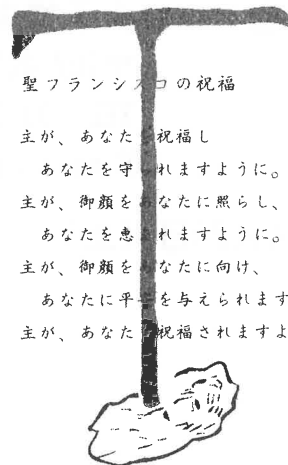 聖フランシスコの祝福
主が、あなたを祝福し
あなたを守られますように。
主が、御顔をあなたに照らし、
あなたを恵まれますように。
主が、御顔をあなたに向け、
あなたに平安を与えられます
主が、あなたを祝福されますよ